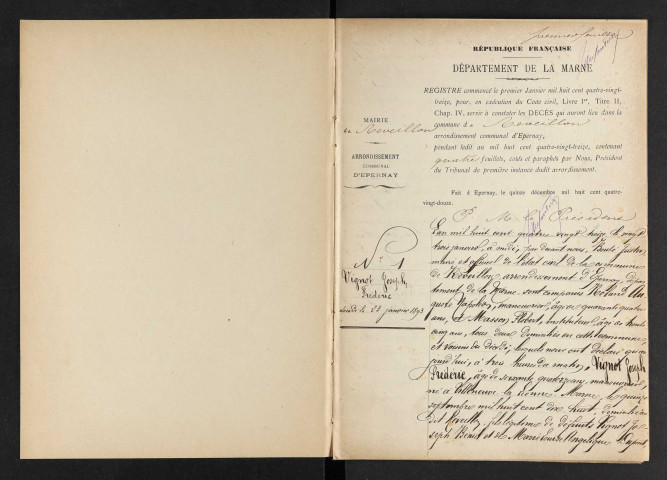 premier feuillet
RÉPUBLIQUE FRANÇAISE
DÉPARTEMENT DE LA MARNE
REGISTRE commencé le premier Janvier mil huit cent quatre-vingt-
treize, pour, en exécution du Code civil, Livre Ier, Titre II,
Chap. IV, servir à constater les DÉCÈS qui auront lieu dans la
commune de Reveillon
arrondissement communal d'Epernay,
pendant ledit an mil huit cent quatre-vingt-treize, contenant
quatre feuillets, cotés et paraphés par Nous, Président
du Tribunal de première instance dudit arrondissement.
Fait à Epernay, le quinze décembre mil huit cent quatre-
vingt-douze.
MAIRIE
de Reveillon
ARRONDISSEMENT
COMMUNAL
D'EPERNAY
P. M. le Président
N° 1
Vignot Joseph
Frédéric
décédé le 23 janvier 1893
L'an mil huit cent quatre vingt treize le vingt
trois janvier, à midi, par devant nous,
maire et officier de l'état civil de la commune
de Réveillon, arrondissement d'Epernay, dépar-
tement de la Marne, sont comparus Rolland Au-
guste Napoléon, manouvrier, âgé de quarante quatre
ans, et Masson Flobert, instituteur, âgé de trente
cinq ans, tous deux domiciliés en cette commune
et voisins du décédé; lesquels nous ont déclaré qu'au-
jourd'hui, à trois heures du matin, Vignot Joseph
Frédéric, âgé de soixante quatorze ans, manouvrier,
né à Villeneuve la Lionne, Marne, le quinze
septembre mil huit cent dix huit, domicilié
dit Reveillon, fils légitime de défunts Vignot Jo-
seph Benoit et de Marie Louise Angélique